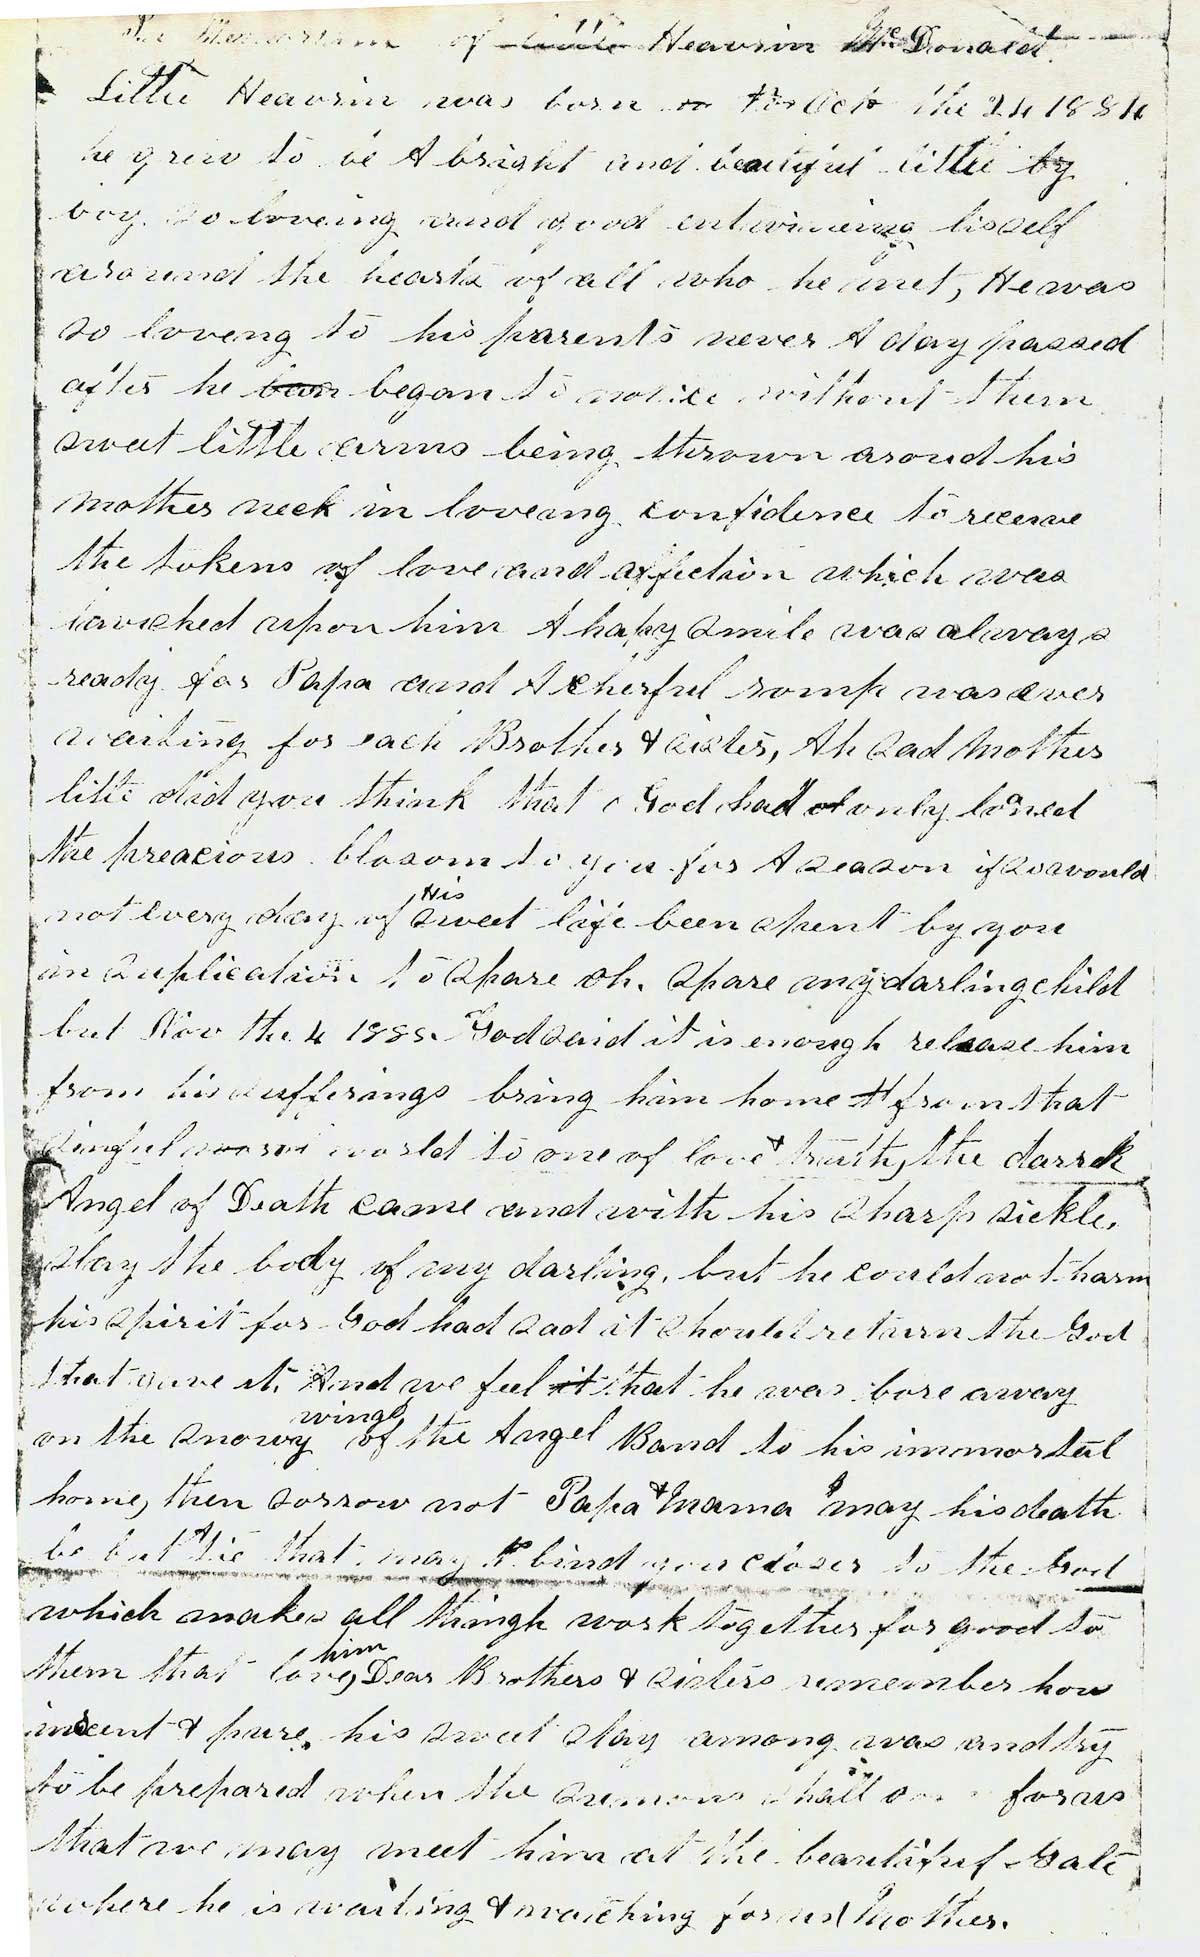 In Memoriam of little Heavrin McDonald.
Little Heavrin was born Oct the 24 1884
he grew to be A bright and beautiful little by
boy. so loveing and good entwineing hisself
around the hearts of all who he met, He was
so loveng to his parents never A day passed
after he began to notice without them
sweet little arms being thrown aroud his
mothers neck in loveing confidence to receive
the tokens of love and affection which was
lavished upon him A hapy smile was always
ready for Papa and A cherful romp was ever
waiting for each Brother & sister, Ah sad Mother
little did you think that God had only loaned
the preacious blosom to you for A season if so would
not every day of His sweet life been spent by you
in suplication to spare oh. spare my darling child
but Nov the 4 1885. God said it is enough release him
from his sufferings bring him home from that
sinful world to one of love & truth, the darrk
Angel of Death came and with his sharp sickle,
slay the body of my darling. but he could not harm
his spirit for God had sad it should return the God
that gave it. And we feel it that he was bore away
on the snowy wings of the Angel Band to his immortal
home, then sorrow not Papa & Mama may his death
be but A tie that may bind you closer to the God
which makes all thingh work together for good to
them that love him, Dear Brothers & sisters remember how
inocent & pure. his sweet stay among was and try
to be prepared when the sumons shall for us
that we may meet him at the beautiful Gate
where he is waiting & watching for us Mother.